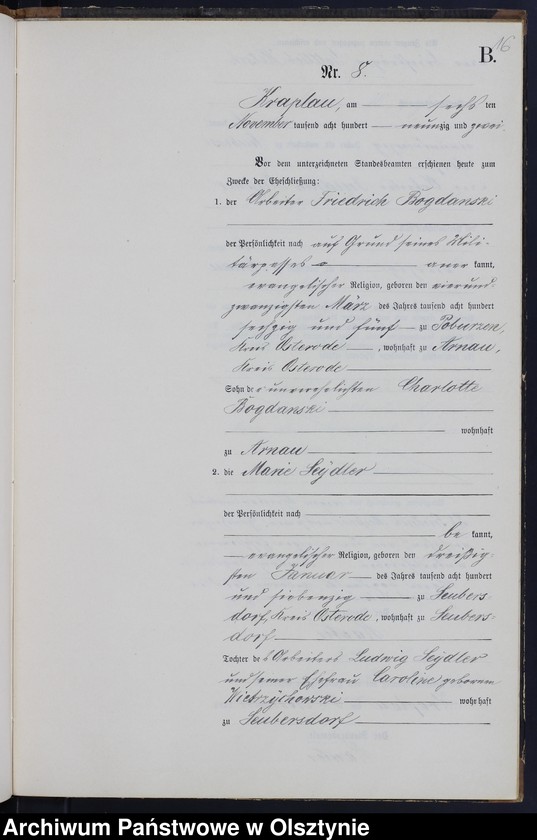 16
B.
Nr. 8.
Kraplau, am sechsten
November tausend acht hundert neunzig und zwei.
Vor dem unterzeichneten Standesbeamten erschienen heute zum
Zwecke der Eheschließung:
1. der Arbeiter Friedrich Bogdanski
der Persönlichkeit nach auf Grund seines Mili-
tärpasses anerkannt,
evangelischer Religion, geboren den vierund-
zwanzigsten März des Jahres tausend acht hundert
sechzig und fünf zu Poburzen,
Kreis Osterode, wohnhaft zu Arnau,
Kreis Osterode
Sohn der unverehelichten Charlotte
Bogdanski
wohnhaft
zu Arnau
2. die Marie Seydler
der Persönlichkeit nach
be kannt,
evangelischer Religion, geboren den dreißig-
sten Januar des Jahres tausend acht hundert
und siebenzig zu Seubers-
dorf, Kreis Osterode, wohnhaft zu Seubers-
dorf
Tochter des Arbeiters Ludwig Seydler
und seiner Ehefrau Caroline geborenen
wohnhaft
zu Seubersdorf
Archiwum Państwowe w Olsztynie